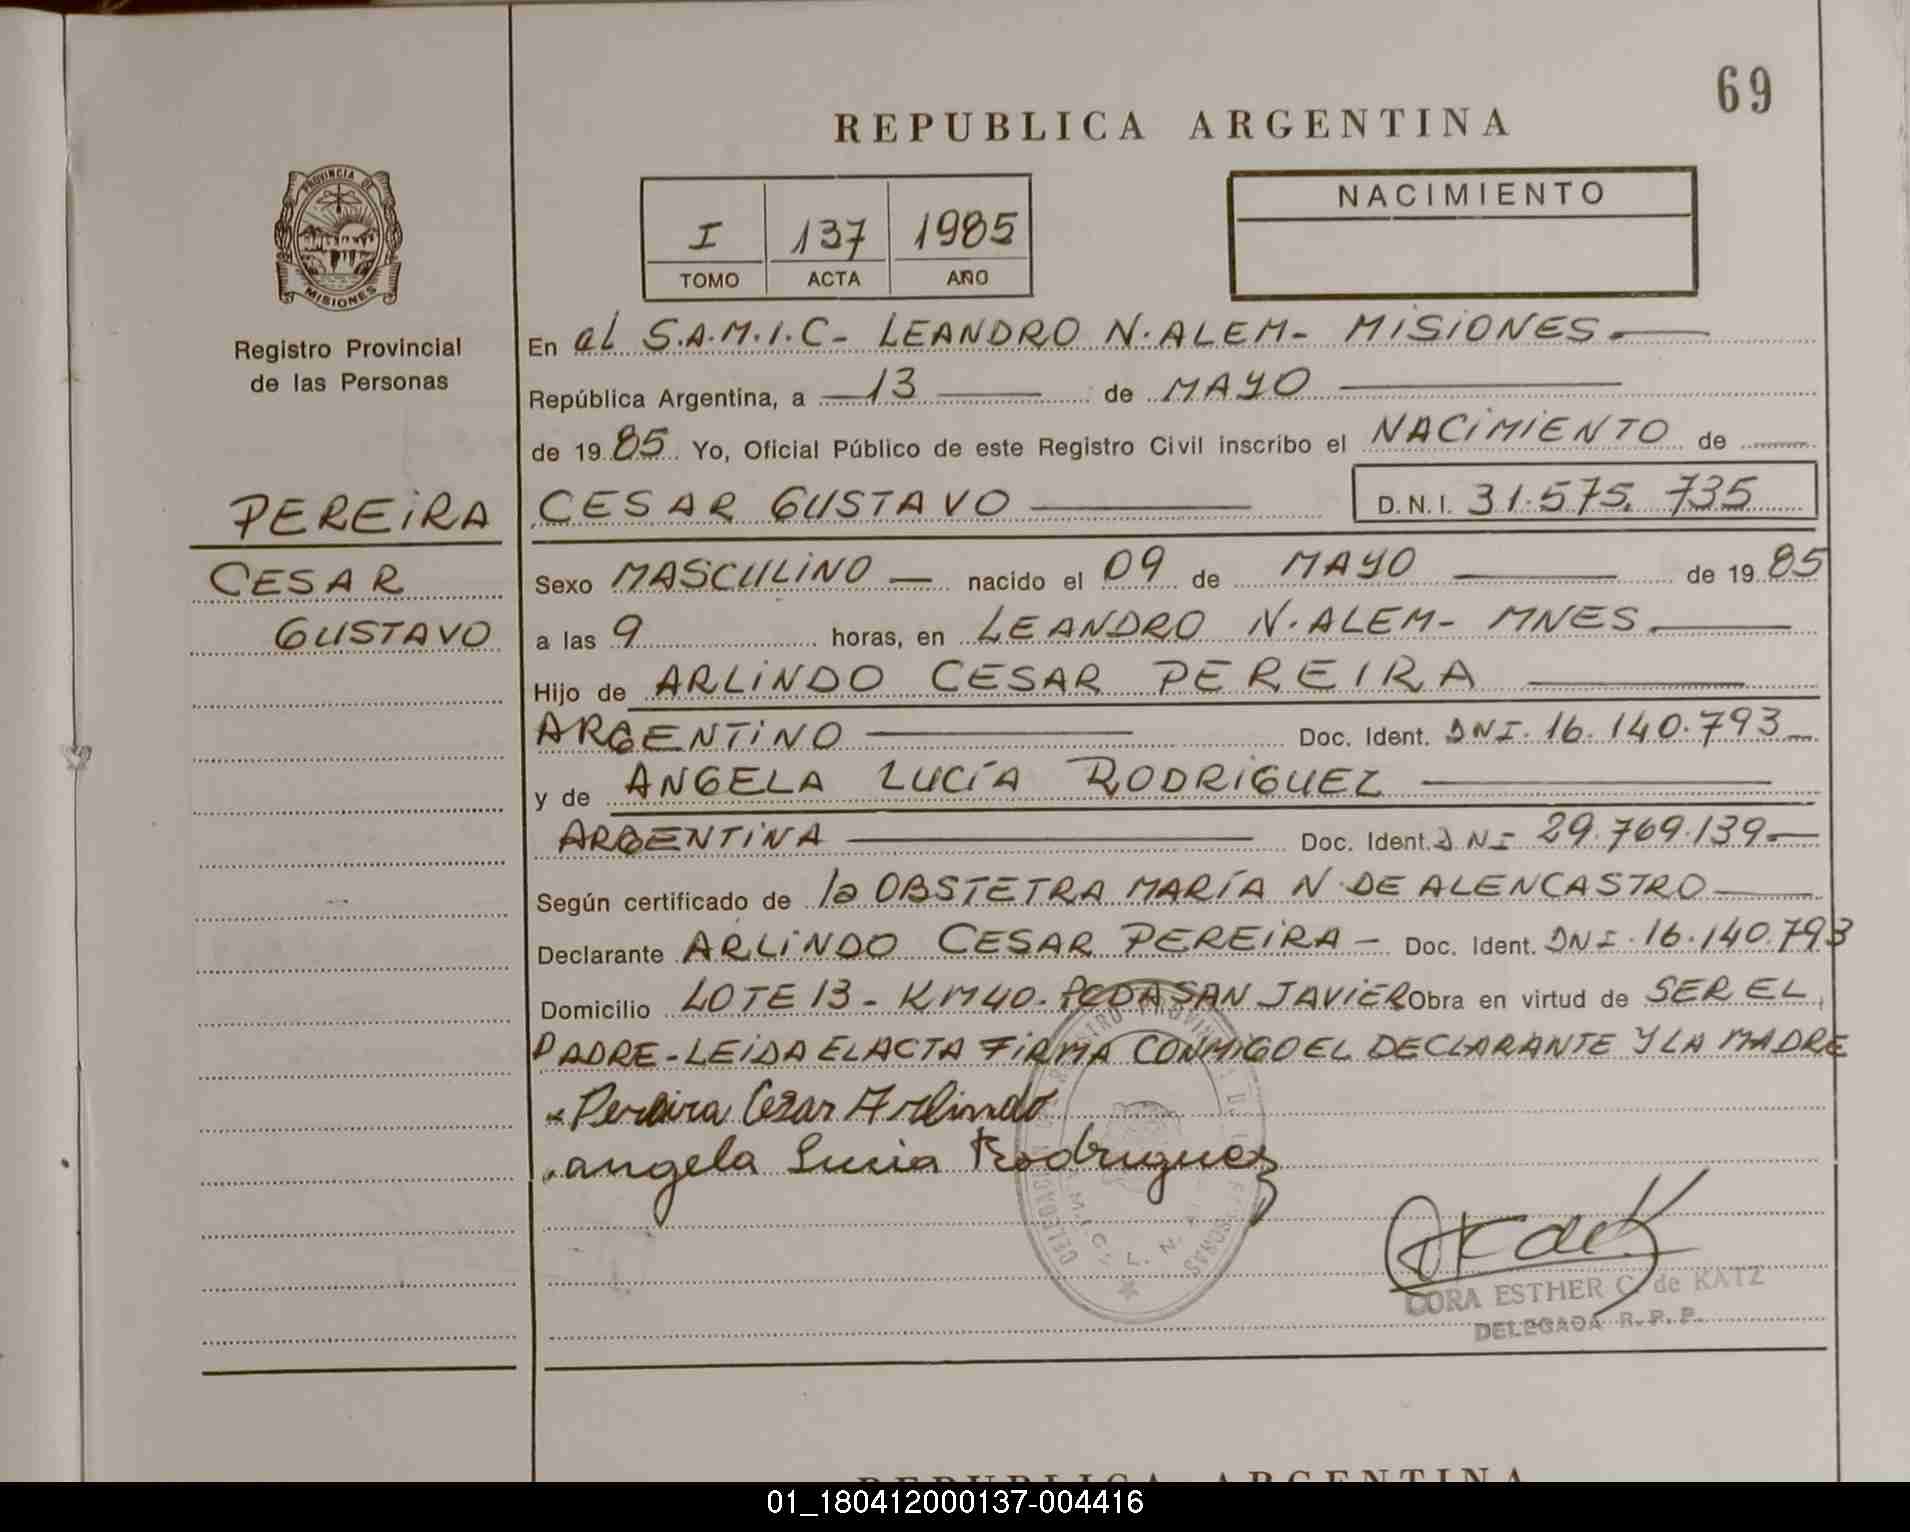 69
REPUBLICA ARGENTINA
PROVINCIA DE
MISIONES
I 137 1985
TOMO ACTA AÑO
NACIMIENTO
Registro Provincial
de las Personas
En al S.A.M.I.C- LEANDRO N. ALEM- MISIONES.
República Argentina, a 13 de MAYO
de 1985 Yo, Oficial Público de este Registro Civil inscribo el NACIMIENTO de
PEREIRA
CESAR GUSTAVO D.N.I. 31.575.735
CESAR
GUSTAVO
Sexo MASCULINO nacido el 09 de MAYO de 1985
a las 9 horas, en LEANDRO N. ALEM- MNES.
Hijo de ARLINDO CESAR PEREIRA
ARGENTINO Doc. Ident. DNI. 16.140.793
y de ANGELA LUCÍA RODRIGUEZ
ARGENTINA Doc. Ident. DNI 29.769.139
Según certificado de la OBSTETRA MARÍA N. DE ALENCASTRO
Declarante ARLINDO CESAR PEREIRA - Doc. Ident. DNI. 16.140.793
Domicilio LOTE 13 - KM40. PCDA SAN JAVIER Obra en virtud de SER EL
PADRE - LEIDA EL ACTA FIRMA CONMIGO EL DECLARANTE Y LA MADRE
Pereira Cesar Arlindo
angela Lucia Rodriguez
CORA ESTHER C. de KATZ
DELEGADA R.P.P.
REPUBLICA ARGENTINA
01_180412000137-004416